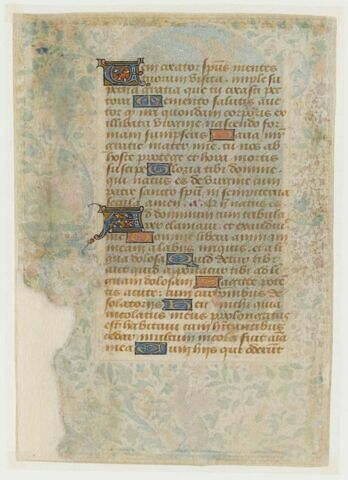 Veni creator spūs mentes
tuorum visita imple su
perna gratia que tu creasti pec
tora Memento salutis auc
tor q̄ nr̄i quondam corporis ex
illibata virgine nascendo for
mam sumpseris Maria m̄r
gratie mater mīe tu nos ab
hoste protege et hora mortis
suscipe Gloria tibi domine
qui natus es de virgine cum
patre et sancto spū in sempiterna
secula amen
Ad dominum cum tribula
rer clamavi et exaudivit
me Domine libera animam
meam a labiis iniquis et a li
gua dolosa Quid detur tibi
aut quid apponatur tibi ad li
guam dolosam Sagitte pote
tis acute cum carbonibus de
solatoriis Heu michi quia
incolatus meus prolongatus
est habitavi cum habitantibus
cedar multum incola fuit aīa
mea Cum hiis qui oderunt